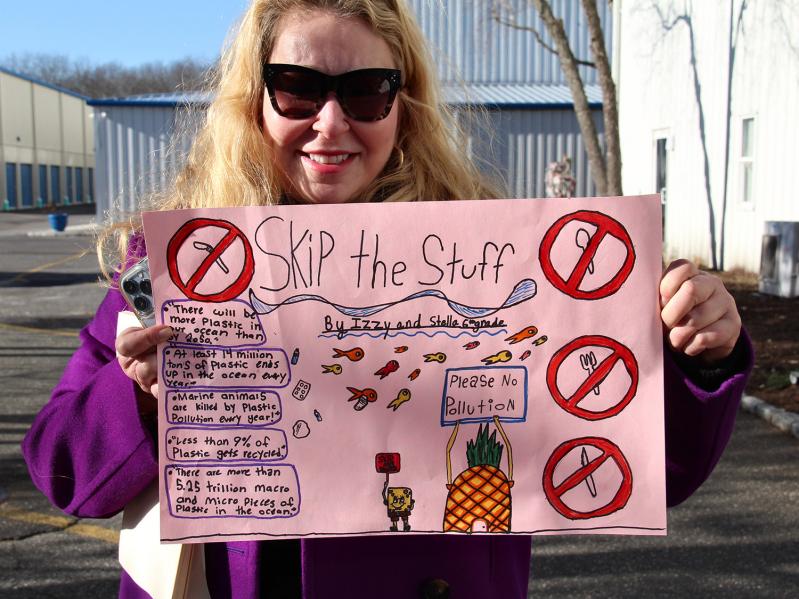 Skip the Stuff
By Izzy and Stella 6th grade
• "There will be
more Plastic in
our ocean than
by 2050."
• At least 14 million
ton's of Plastic ends
up in the ocean every
year
• Marine animals
are killed by Plastic
Pollution every year!"
• "Less than 9% of
Plastic gets recycled."
• "There are more than
5.25 trillion macro
and micro pieces of
Plastic in the ocean.
Please No
Pollution